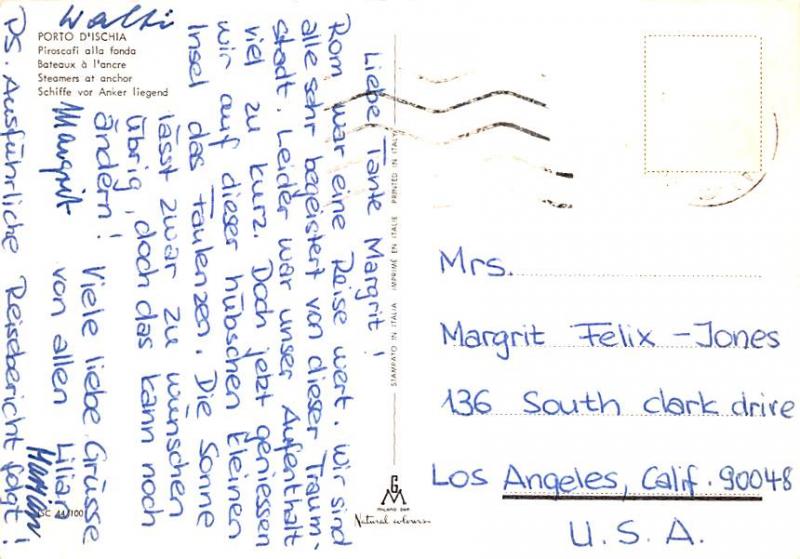 Walti
PORTO D'ISCHIA
Piroscafi alla fonda
Bateaux à l'ancre
Steamers at anchor
Schiffe vor Anker liegend
Liebe Tante Margrit!
Rom war eine Reise wert. Wir sind
alle sehr begeistert von dieser Traum-
stadt. Leider war unser Aufenthalt
viel zu kurz. Doch jetzt geniessen
wir auf dieser hübschen kleinen
Insel das Faulenzen. Die Sonne
lässt zwar zu wünschen
übrig, doch das kann noch
ändern!
Viele liebe Grüsse
von allen Lilian
Margrit
Marian
PS. Ausführliche Reisebericht folgt!
STAMPATO IN ITALIA IMPRIMÉ EN ITALIE PRINTED IN ITALY
GM
MILANO
Natural colours
Mrs.
Margrit Felix-Jones
136 South clark drive
Los Angeles, Calif. 90048
U.S.A.